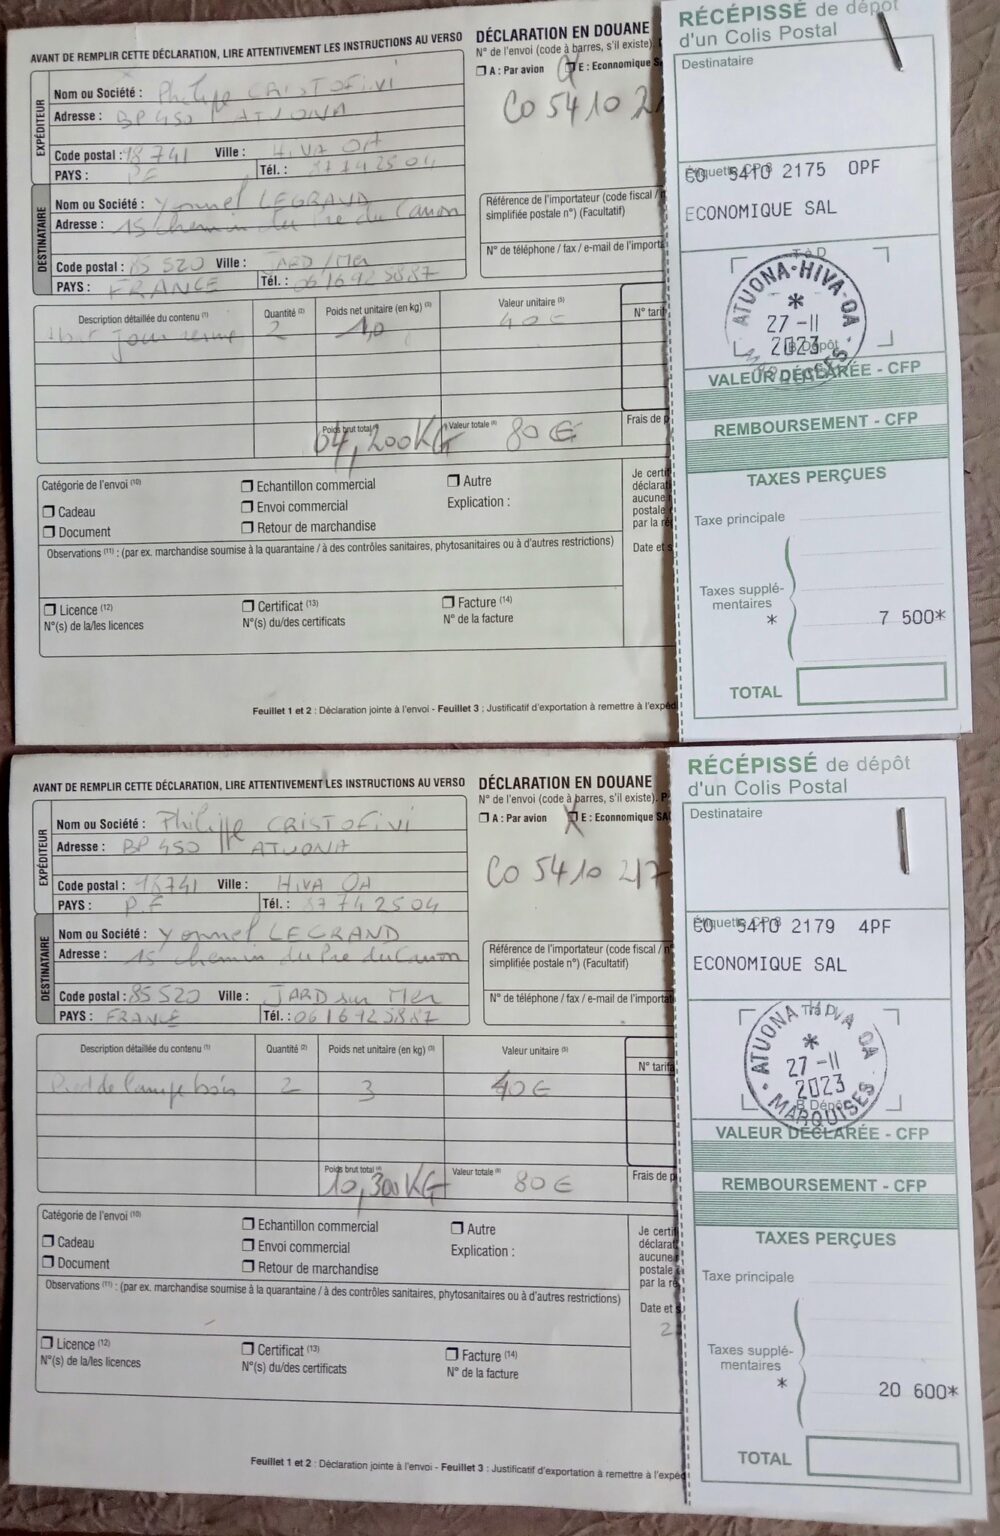 AVANT DE REMPLIR CETTE DÉCLARATION, LIRE ATTENTIVEMENT LES INSTRUCTIONS AU VERSO
DÉCLARATION EN DOUANE
N° de l'envoi (code à barres, s'il existe).
A : Par avion E : Economique
CO 5410 2
EXPÉDITEUR
Nom ou Société : Philippe CRISTOFINI
Adresse : BP 450 ATUONA
Code postal : 98741 Ville : HIVA OA
PAYS : PF Tél. : 87742504
DESTINATAIRE
Nom ou Société : Yonnel LEGRAND
Adresse : 15 chemin du Pré du Canon
Code postal : 85 520 Ville : JARD /Mer
PAYS : FRANCE Tél. : 0616925887
Référence de l'importateur (code fiscal /
simplifiée postale n°) (Facultatif)
N° de téléphone / fax / e-mail de l'import
Description détaillée du contenu (1) Quantité (2) Poids net unitaire (en kg) (3) Valeur unitaire (5) N° tarif
2 40€
Poids brut total (4) 04,200KG Valeur totale (6) 80€ Frais de p
Catégorie de l'envoi (10)
Cadeau
Document
Echantillon commercial
Envoi commercial
Retour de marchandise
Autre
Explication :
Je certif
déclarat
aucune
postale
par la ré
Date et s
Observations (11) : (par ex. marchandise soumise à la quarantaine / à des contrôles sanitaires, phytosanitaires ou à d'autres restrictions)
Licence (12)
N°(s) de la/les licences
Certificat (13)
N°(s) du/des certificats
Facture (14)
N° de la facture
Feuillet 1 et 2 : Déclaration jointe à l'envoi - Feuillet 3 : Justificatif d'exportation à remettre à l'expéd
RÉCÉPISSÉ de dépôt
d'un Colis Postal
Destinataire
Étiquette CP 3
CO 5410 2175 0PF
ECONOMIQUE SAL
TàD
ATUONA-HIVA-OA
*
27 -11
2023
B Dépôt
MARQUISES
VALEUR DÉCLARÉE - CFP
REMBOURSEMENT - CFP
TAXES PERÇUES
Taxe principale
Taxes supplé-
mentaires
* 7 500*
TOTAL
AVANT DE REMPLIR CETTE DÉCLARATION, LIRE ATTENTIVEMENT LES INSTRUCTIONS AU VERSO
DÉCLARATION EN DOUANE
N° de l'envoi (code à barres, s'il existe). P
A : Par avion E : Economique SA
CO 5410 217
EXPÉDITEUR
Nom ou Société : Philippe CRISTOFINI
Adresse : BP 450 ATUONA
Code postal : 98741 Ville : HIVA OA
PAYS : P.F Tél. : 87742504
DESTINATAIRE
Nom ou Société : Yonnel LEGRAND
Adresse : 15 chemin du Pré du Canon
Code postal : 85 520 Ville : JARD sur Mer
PAYS : FRANCE Tél. : 0616925887
Référence de l'importateur (code fiscal / n°
simplifiée postale n°) (Facultatif)
N° de téléphone / fax / e-mail de l'importat
Description détaillée du contenu (1) Quantité (2) Poids net unitaire (en kg) (3) Valeur unitaire (5) N° tarifa
Pied de lampe bois 2 3 40€
Poids brut total (4) 10,300KG Valeur totale (6) 80€ Frais de p
Catégorie de l'envoi (10)
Cadeau
Document
Echantillon commercial
Envoi commercial
Retour de marchandise
Autre
Explication :
Je certif
déclarat
aucune
postale
par la ré
Date et s
2
Observations (11) : (par ex. marchandise soumise à la quarantaine / à des contrôles sanitaires, phytosanitaires ou à d'autres restrictions)
Licence (12)
N°(s) de la/les licences
Certificat (13)
N°(s) du/des certificats
Facture (14)
N° de la facture
Feuillet 1 et 2 : Déclaration jointe à l'envoi - Feuillet 3 : Justificatif d'exportation à remettre à l'expéd
RÉCÉPISSÉ de dépôt
d'un Colis Postal
Destinataire
Étiquette CP 3
CO 5410 2179 4PF
ECONOMIQUE SAL
TàD
ATUONA HIVA OA
*
27 -11
2023
B Dépôt
MARQUISES
VALEUR DÉCLARÉE - CFP
REMBOURSEMENT - CFP
TAXES PERÇUES
Taxe principale
Taxes supplé-
mentaires
* 20 600*
TOTAL